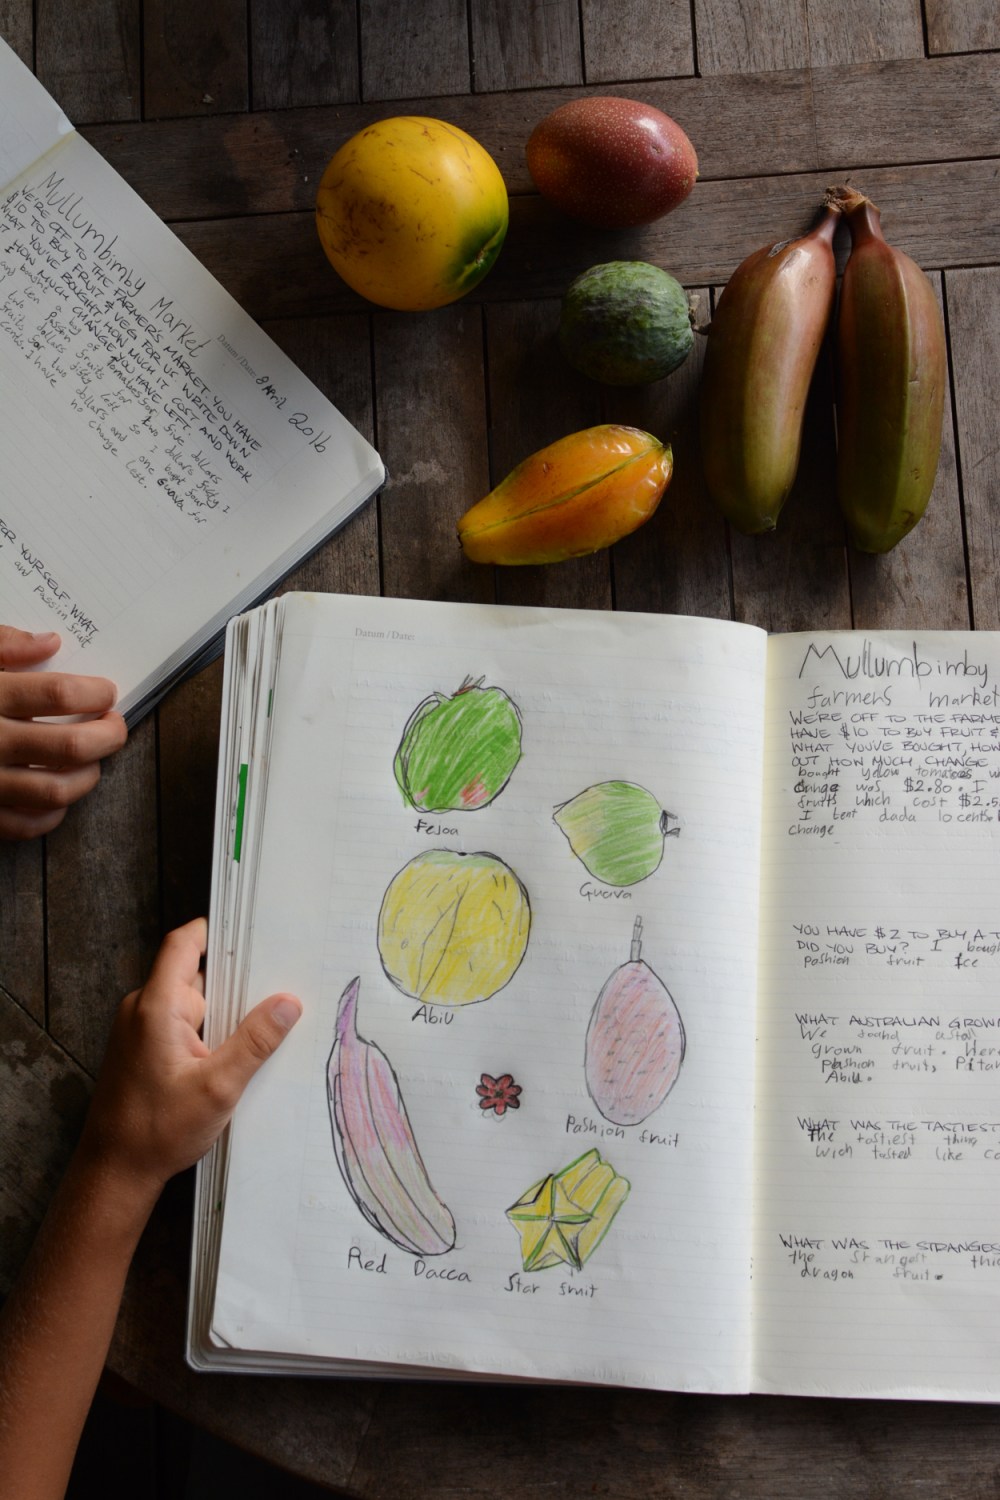 Mullumbimby Market
Datum / Date: 8 April 2016
WE'RE OFF TO THE FARMER'S MARKET. YOU HAVE
$10 TO BUY FRUIT & VEG FOR US. WRITE DOWN
WHAT YOU'VE BOUGHT, HOW MUCH IT COST AND WORK
HOW MUCH CHANGE YOU HAVE LEFT.
I bought a bag of tomatoes for five dollars
and ten Passion fruits for two dollars fifty I
dollars fifty left so I bought four
fruits for two dollars and one Guava for
cents. I have no change left.
FOR YOURSELF. WHAT
and Passion fruit
Datum / Date:
Fejoa
Guava
Abiu
Pashion fruit
Red Dacca
Star fruit
Mullumbimby
farmers market
WE'RE OFF TO THE FARME
HAVE $10 TO BUY FRUIT &
WHAT YOU'VE BOUGHT, HOW
OUT HOW MUCH CHANGE
bought yellow tomatoes w
change was $2.80. I
fruits which cost $2.5
I lent dada 10 cents.
change
YOU HAVE $2 TO BUY A T
DID YOU BUY? I bough
pashion fruit Ice
WHAT AUSTRALIAN GROWN
We found
grown fruit. Here
pashion fruit, Pitar
Abiu.
WHAT WAS THE TASTIEST
The tastiest thing
wich tasted like ca
WHAT WAS THE STRANGES
the strangest thi
dragon fruit.